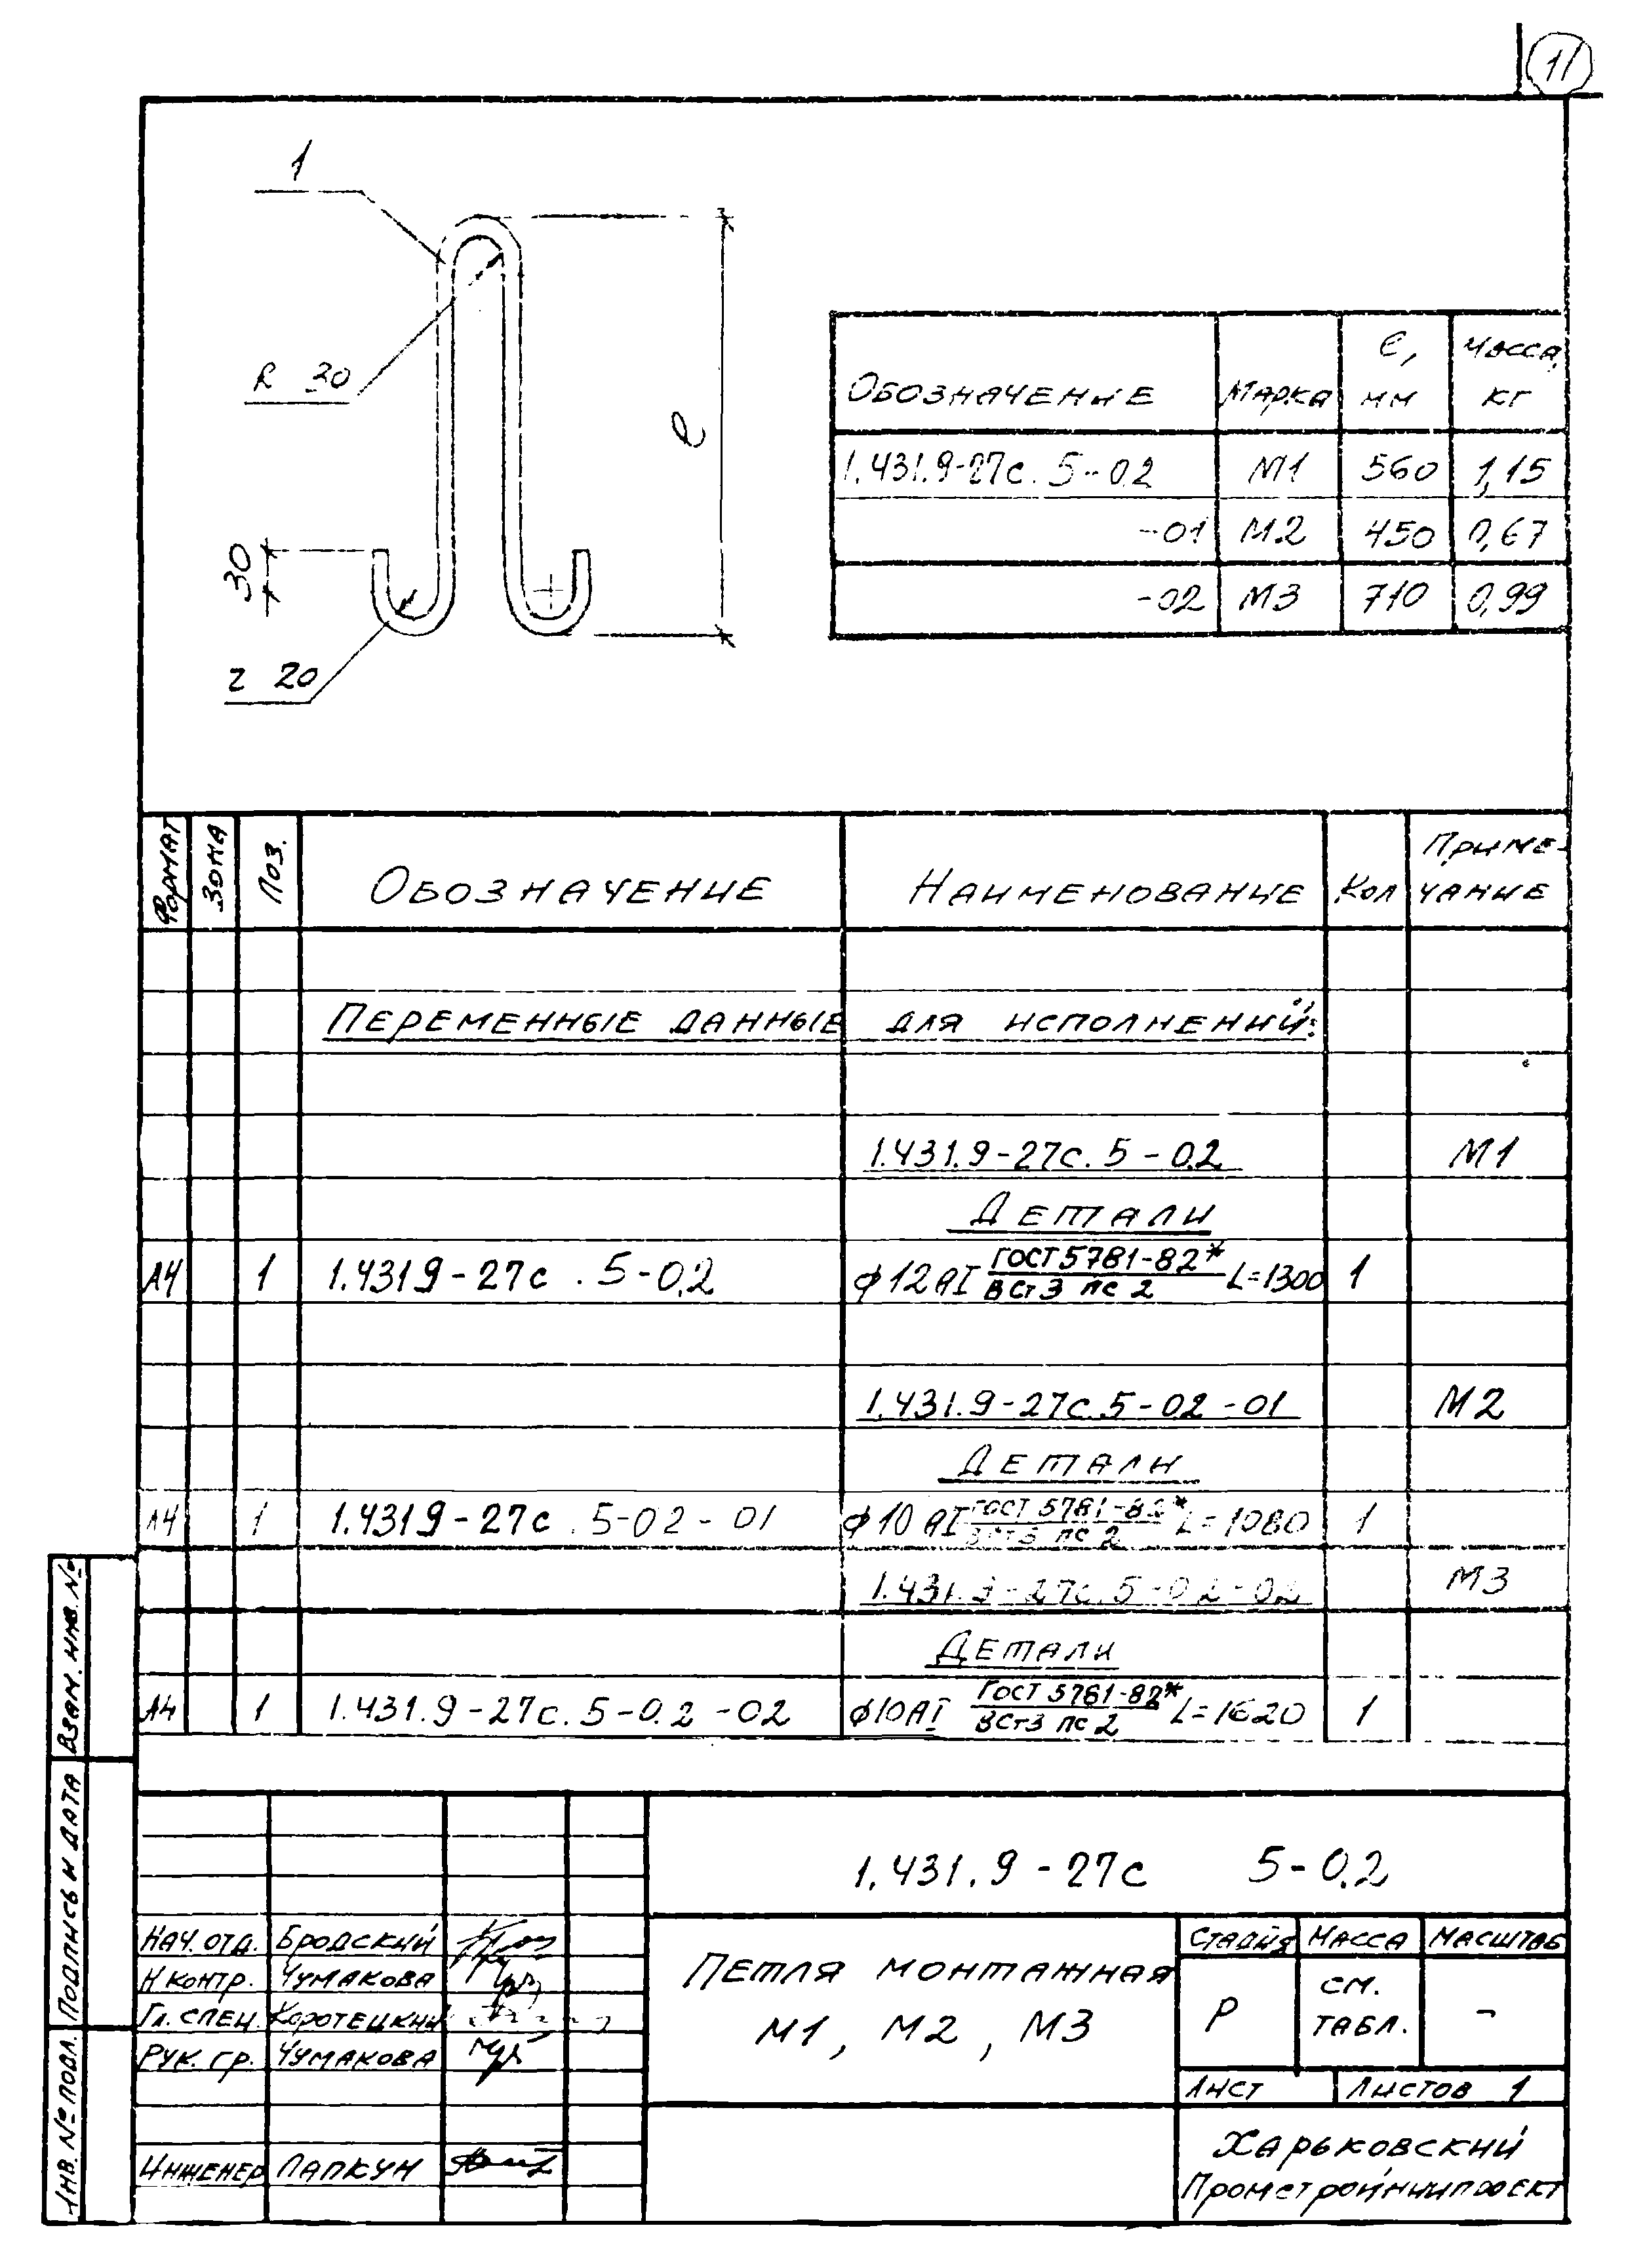 11
1
R 30
l
30
r 20
Обозначение Марка l, мм Масса, кг
1.431.9-27с.5-02 М1 560 1,15
-01 М2 450 0,67
-02 М3 710 0,99
Формат Зона Поз. Обозначение Наименование Кол Примечание
Переменные данные для исполнений:
1.431.9-27с.5-02 М1
Детали
А4 1 1.431.9-27с.5-02 ф12АI ГОСТ 5781-82* / ВСт3 пс 2 L=1300 1
1.431.9-27с.5-02-01 М2
Детали
А4 1 1.431.9-27с.5-02-01 ф10АI ГОСТ 5781-82* / ВСт3 пс 2 L=1080 1
1.431.9-27с.5-02-02 М3
Детали
А4 1 1.431.9-27с.5-02-02 ф10АI ГОСТ 5781-82* / ВСт3 пс 2 L=1620 1
Взам. инв. №
Подпись и дата
Инв. № подл.
1.431.9-27с 5-02
Нач. отд. Бродский
Н контр. Чумакова
Гл. спец. Коротецкий
Рук. гр. Чумакова
Инженер Лапкун
Петля монтажная
М1, М2, М3
Стадия Масса Масштаб
Р см. табл. -
Лист Листов 1
Харьковский
Промстройниипроект